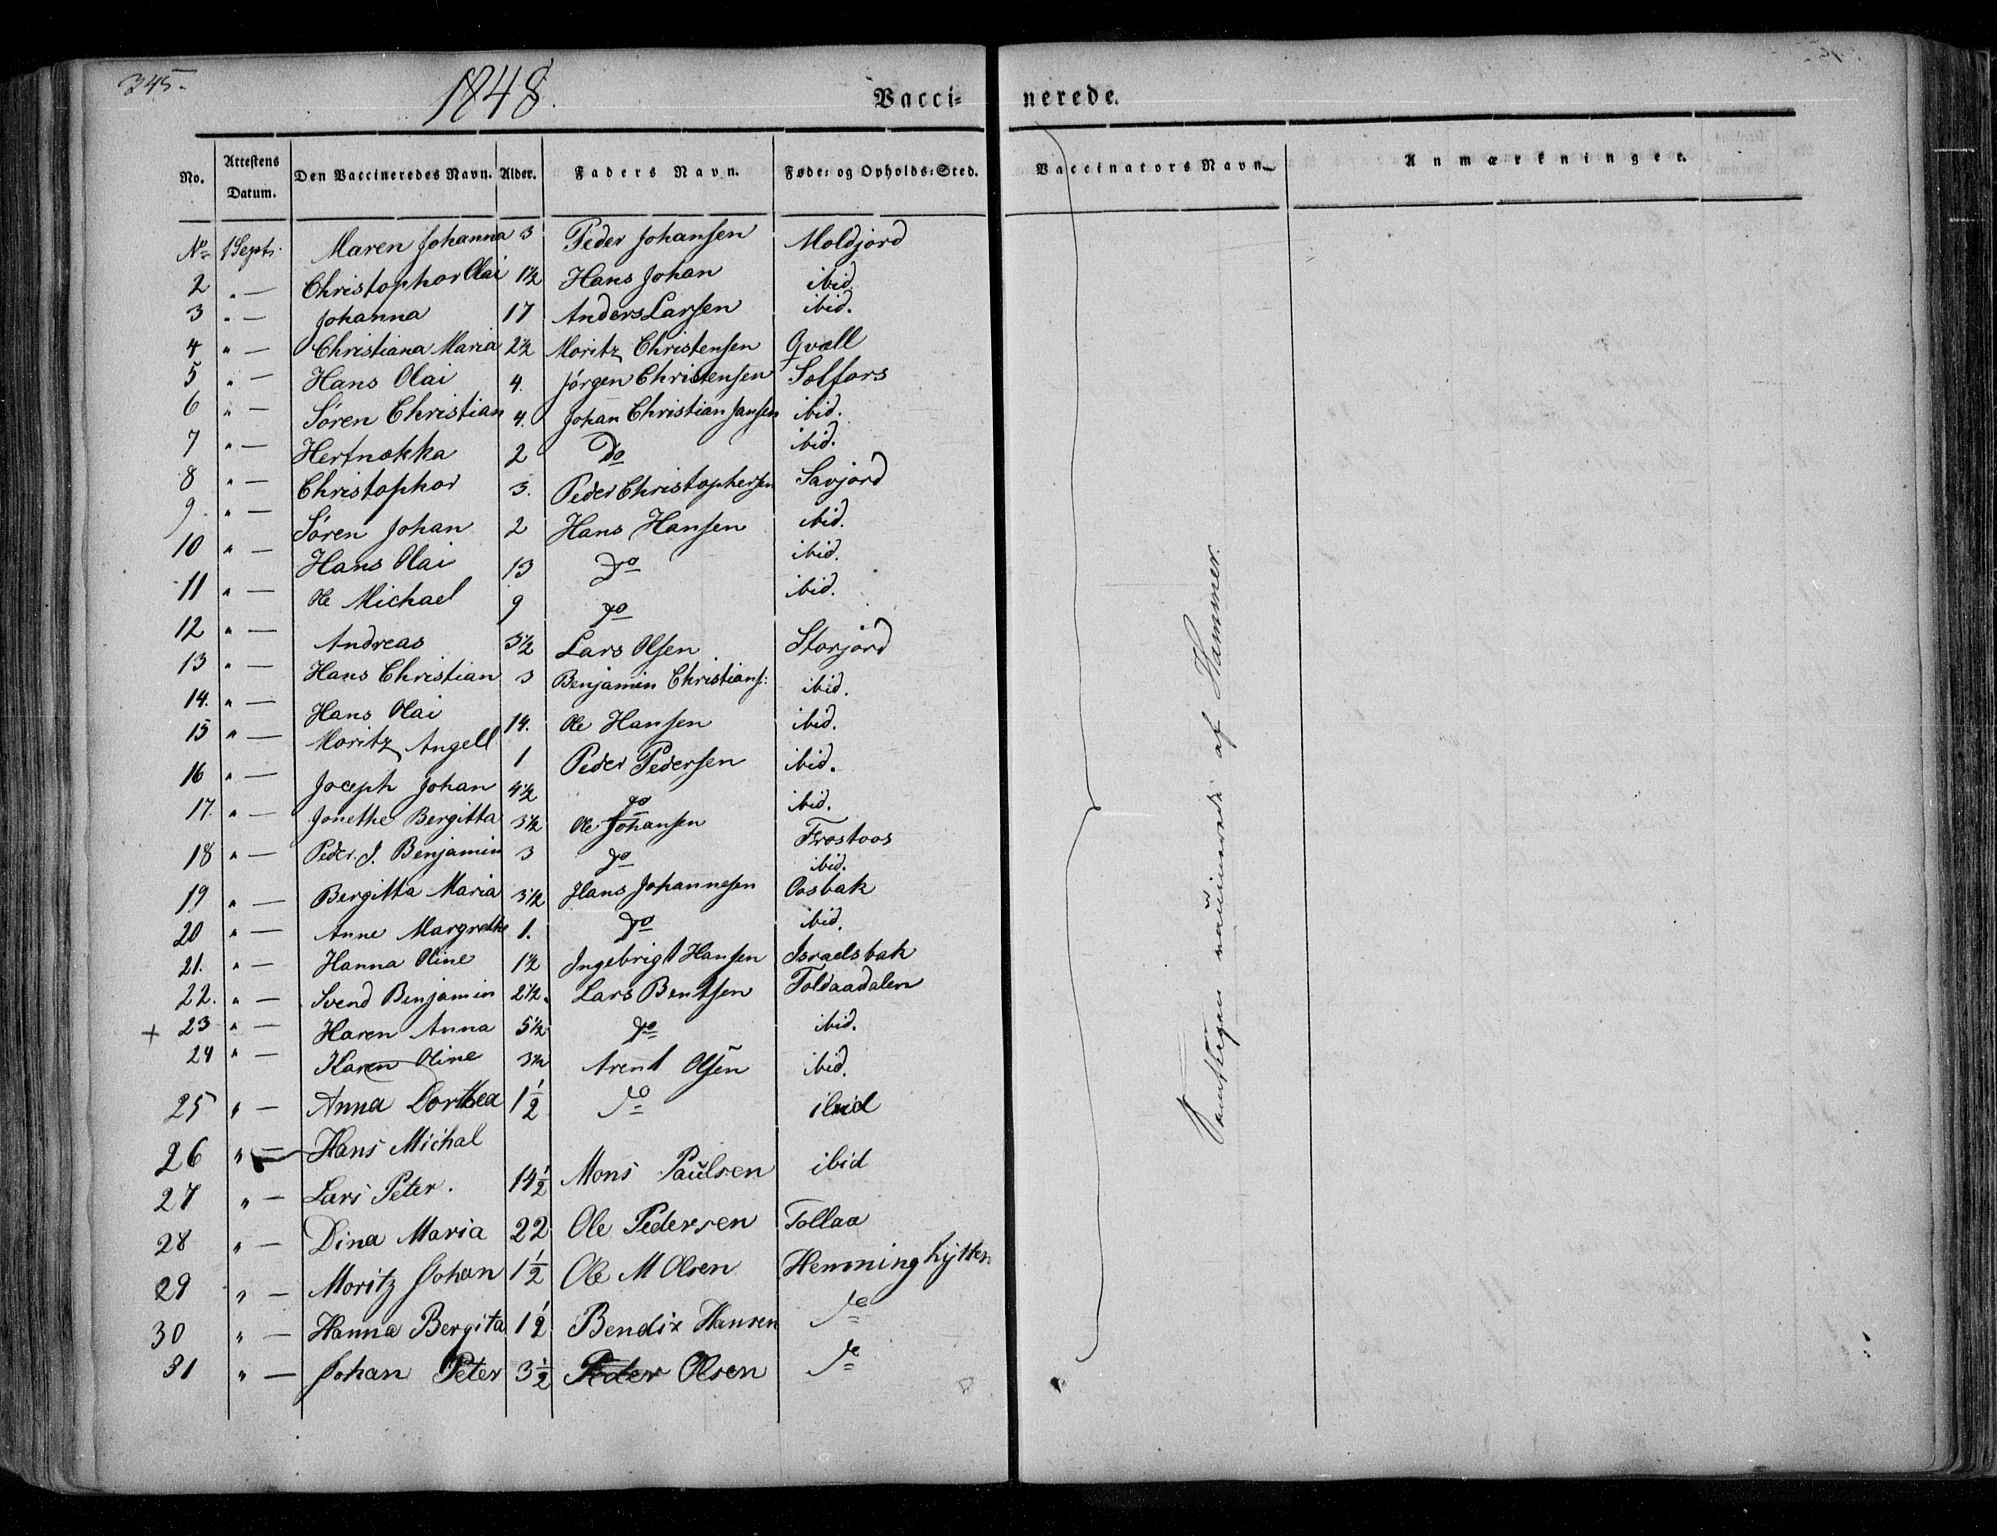 345.
1848.
Vacci- nerede.
No. Attestens Datum. Den Vaccineredes Navn. Alder. Faders Navn. Føde- og Opholds-Sted. Vaccinators Navn. Anmærkninger.
No 1 Sept. Maren Johanna 3 Peder Johansen Moldjord
2 " — Christophor Olai 1½ Hans Johan ibid.
3 " — Johanna 17 Anders Larsen ibid.
4 " — Christiana Maria 2½ Moritz Christensen Qvæll
5 " — Hans Olai 4. Jørgen Christensen Solfors
6 " — Søren Christian 4. Johan Christian Jansen ibid.
7 " — 2 Do ibid.
8 " — Christophor 3. Peder Christophersen Savjord
9. " — Søren Johan 2 Hans Hansen ibid.
10 " — Hans Olai 13 Do ibid.
11 " — Ole Michael 9 Do ibid.
12 " — Andreas 3½ Lars Olsen Storjord
13 " — Hans Christian 3 Benjamin Christians: ibid.
14. " — Hans Olai 14. Ole Hansen ibid.
15 " — Moritz Angell 1 Peder Pedersen ibid.
16 " — Joceph Johan 4½ Do ibid.
17. " — Jonethe Bergitta 3½ Ole Johansen Frostoos
18 " — Peder J. Benjamin 3 Do ibid.
19 " — Bergitta Maria 3½ Hans Johannesen Oosbak
20 " — Anne Margrethe 1. Do ibid.
21. " — Hanna Oline 1½ Ingebrigt Hansen Israelsbak
22. " — Svend Benjamin 2½. Lars Bentsen Toldaadalen
+ 23 " — Haren Anna 5½ Do ibid.
24 " — Karen Oline 3½ Arent Olsen ibid.
25 " — Anna Dorthea 1½ Do ibid
26 " — Hans Michal
27 " — Lars Peter. 14½ Mons Paulsen ibid
28 " — Dina Maria 22 Ole Pedersen Tollaa
29 " — Moritz Johan 1½ Ole M Olsen Hemminghytten
30 " — Hanna Bergita 1½ Bendix Hansen do
31 " — Johan Peter 3½ Peder Olsen do
Samtligen vaccinerede af Hammer.